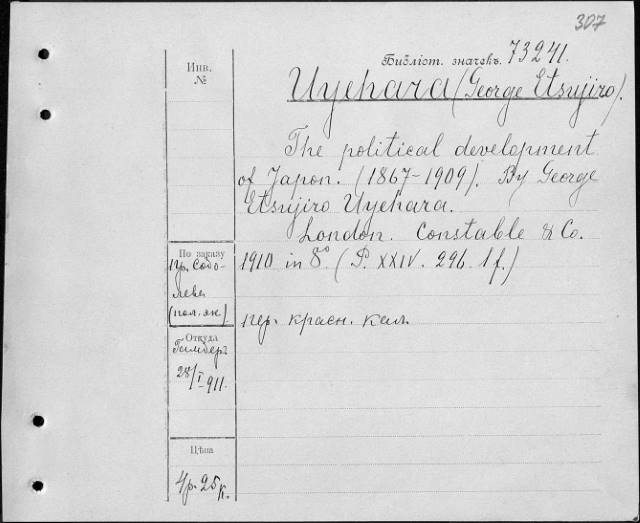 307
Библіот. значекъ. 73241.
Инв.
№
Uyehara (George Etsujiro).
The political development
of Japon. (1867-1909). By George
Etsujiro Uyehara.
London. Constable & Co.
1910 in 8°. (P. XXIV. 296. 1 f.)
пер. красн. кал.
По заказу
пр. Собо-
лева
(пол. эк.)
Откуда
28/I 911.
Цѣна
4р. 25 к.